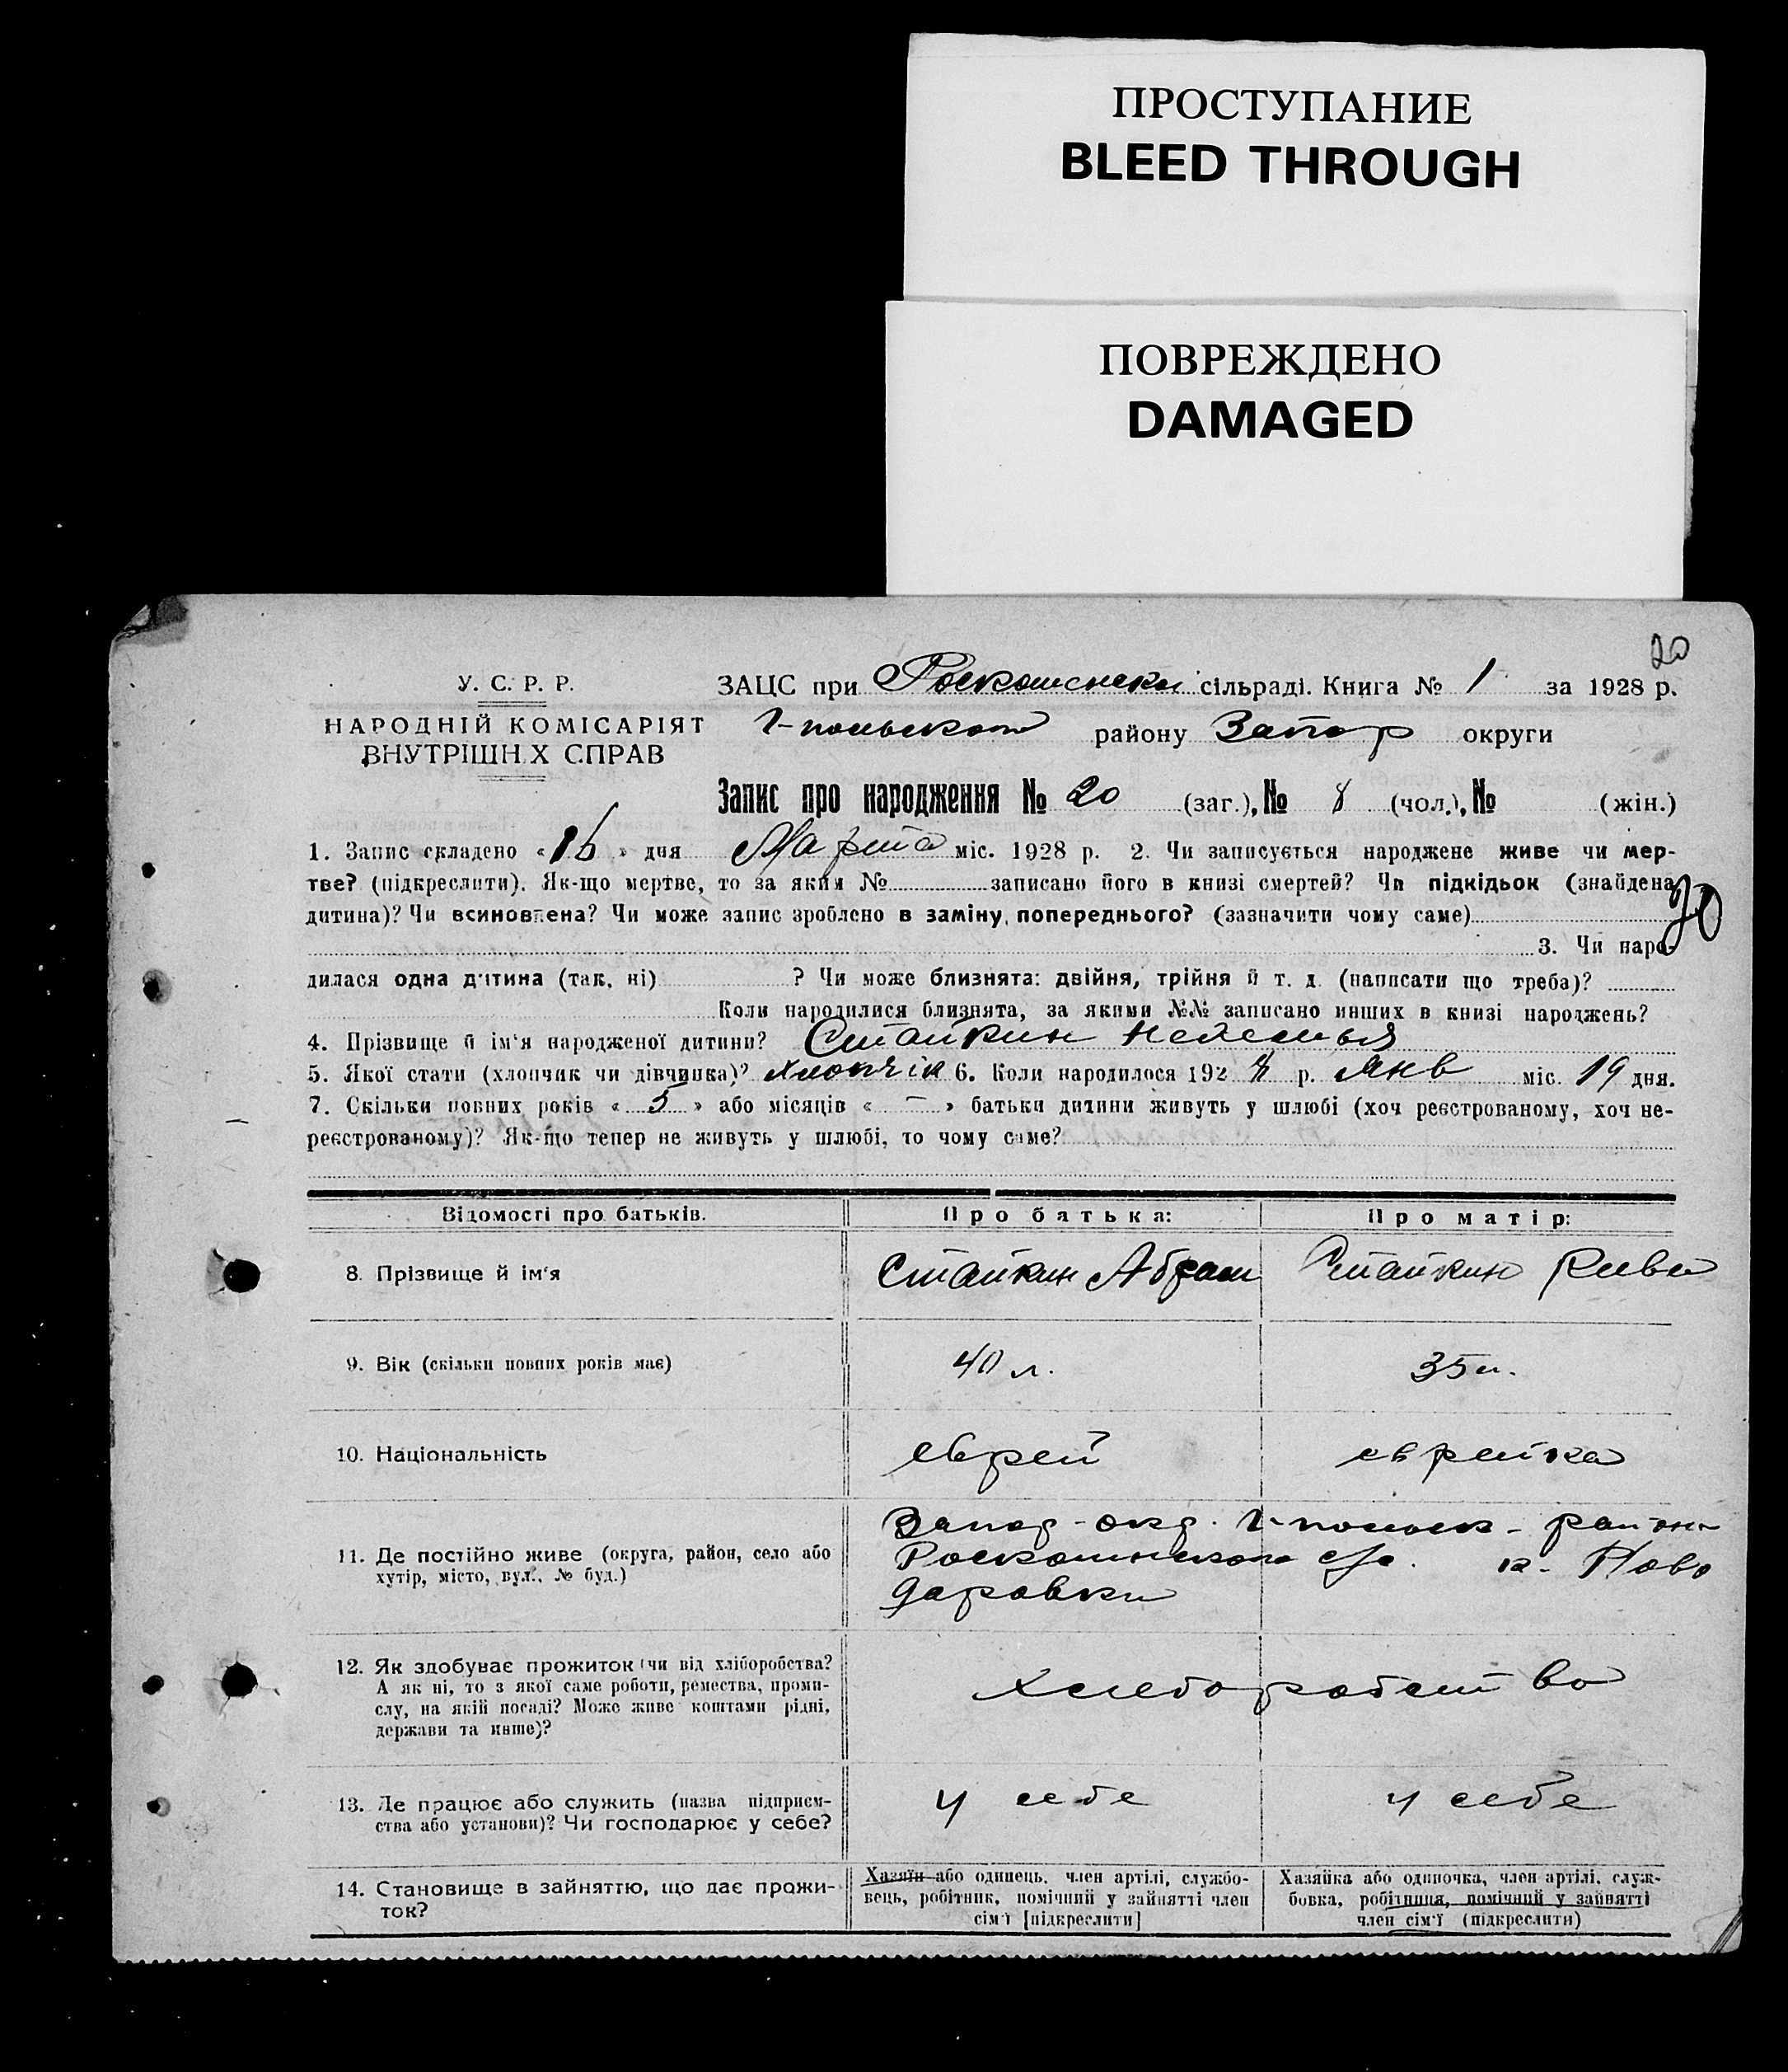 ПРОСТУПАНИЕ
BLEED THROUGH
ПОВРЕЖДЕНО
DAMAGED
20
У. С. Р. Р.
НАРОДНІЙ КОМІСАРІЯТ
ВНУТРІШН.Х СПРАВ
ЗАЦС при сільраді. Книга № 1 за 1928 р.
району Запор округи
Запис про народження № 20 (заг.), № 8 (чол.), № (жін.)
1. Запис складено «16» дня Марта міс. 1928 р. 2. Чи записується народжене живе чи мер-
тве? (підкреслити). Як-що мертве, то за яким № записано його в книзі смертей? Чи підкідьок (знайдена
20
дитина)? Чи всиновлена? Чи може запис зроблено в заміну попереднього? (зазначити чому саме)
3. Чи наро-
дилася одна дитина (так, ні) ? Чи може близнята: двійня, трійня й т. д. (написати що треба)?
Коли народилися близнята, за якими №№ записано инших в книзі народжень?
4. Прізвище й ім'я народженої дитини? Стайкин
5. Якої стати (хлопчик чи дівчинка)? хлопчік 6. Коли народилося 1928 р. Янв міс. 19 дня.
7. Скільки повних років «5» або місяців «–» батьки дитини живуть у шлюбі (хоч реєстрованому, хоч не-
реєстрованому)? Як-що тепер не живуть у шлюбі, то чому саме?
Відомості про батьків. Про батька: Про матір:
8. Прізвище й ім'я Стайкин Абрам Стайкин Рива
9. Вік (скільки повних років має) 40 л. 35 л.
10. Національність еврей еврейка
11. Де постійно живе (округа, район, село або
хутір, місто, вул., № буд.)
Запор - окр. район
с/с. к. Ново
даровки
12. Як здобуває прожиток (чи від хліборобства?
А як ні, то з якої саме роботи, ремества, проми-
слу, на якій посаді? Може живе коштами рідні,
держави та инше)?
Хлеборобство
13. Де працює або служить (назва підприєм-
ства або установи)? Чи господарює у себе?
у себе у себе
14. Становище в зайняттю, що дає прожи-
ток?
Хазяїн або одинець, член артілі, службо-
вець, робітник, помічний у зайнятті член
сім'ї [підкреслити]
Хазяйка або одиночка, член артілі, служ-
бовка, робітниця, помічний у зайнятті
член сім'ї (підкреслити)